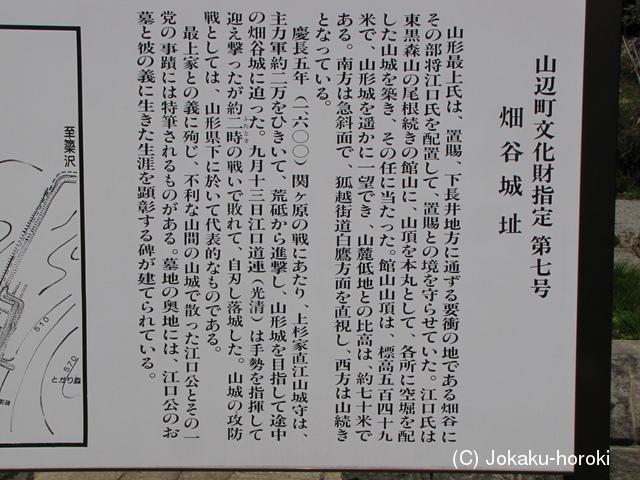 山辺町文化財指定 第七号
畑谷城址
山形最上氏は、置賜、下長井地方に通ずる要衝の地である畑谷に
その部将江口氏を配置して、置賜との境を守らせていた。江口氏は
東黒森山の尾根続きの館山に、山頂を本丸として、各所に空堀を配
した山城を築き、その任に当たった。館山山頂は、標高五百四十九
米で、山形城を遥かに一望でき、山麓低地との比高は、約七十米で
ある。南方は急斜面で、狐越街道白鷹方面を直視し、西方は山続き
となっている。
慶長五年(一六〇〇)関ヶ原の戦にあたり、上杉家直江山城守は、
主力軍約二万をひきいて、荒砥から進撃し、山形城を目指して途中
の畑谷城に迫った。九月十三日江口道連(光清)は手勢を指揮して
迎え撃ったが約二時の戦いで敗れて、自刃し落城した。山城の攻防
戦としては、山形県下に於いて代表的なものである。
最上家との義に殉じ、不利な山間の山城で散った江口公とその一
党の事蹟には特筆されるものがある。墓地の奥地には、江口公のお
墓と彼の義に生きた生涯を顕彰する碑が建てられている。
至簗沢
510
570
とがり森
(C) Jokaku-horoki